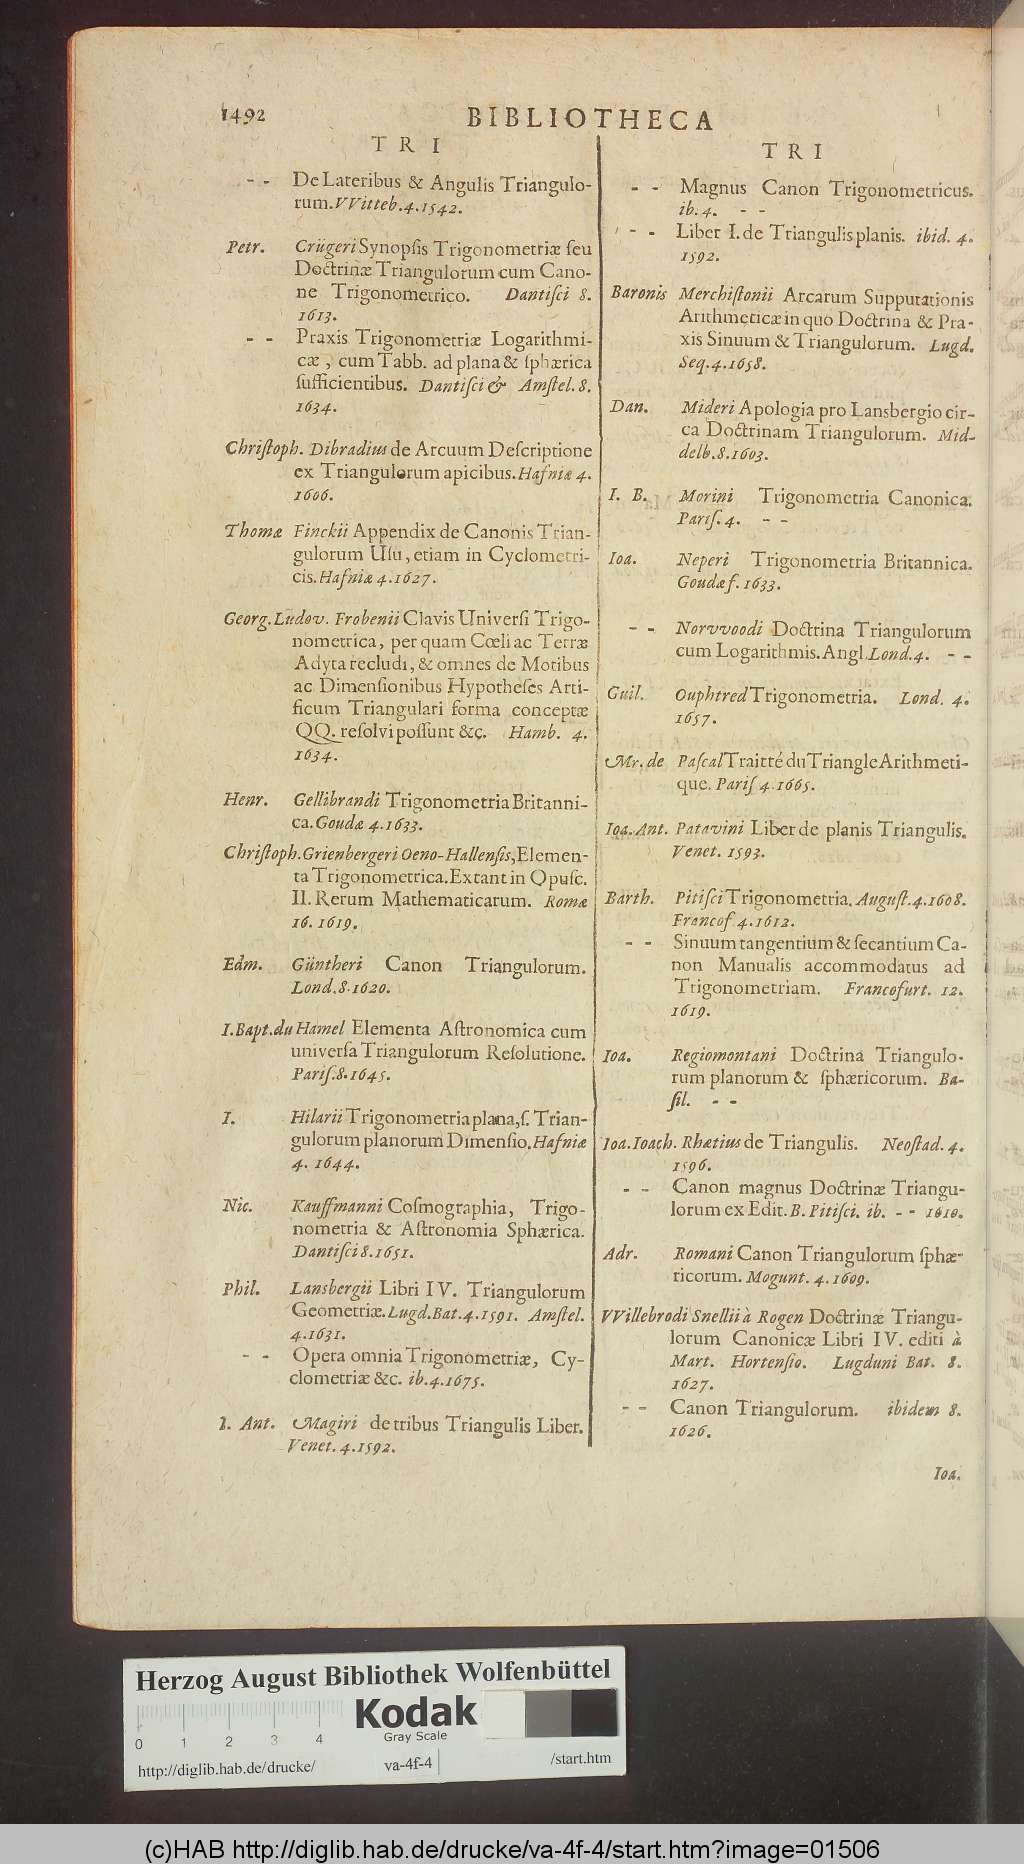 1492
BIBLIOTHECA
TRI
- - De Lateribus & Angulis Triangulo-
rum. VVitteb. 4. 1542.
Petr. Crügeri Synopsis Trigonometriæ seu
Doctrinæ Triangulorum cum Cano-
ne Trigonometrico. Dantisci 8.
1613.
- - Praxis Trigonometriæ Logarithmi-
cæ, cum Tabb. ad plana & sphærica
sufficientibus. Dantisci & Amstel. 8.
1634.
Christoph. Dibradius de Arcuum Descriptione
ex Triangulorum apicibus. Hafniæ 4.
1606.
Thomæ Finckii Appendix de Canonis Trian-
gulorum Usu, etiam in Cyclometri-
cis. Hafniæ 4. 1627.
Georg. Ludov. Frobenii Clavis Universi Trigo-
nometrica, per quam Cœli ac Terræ
Adyta recludi, & omnes de Motibus
ac Dimensionibus Hypotheses Arti-
ficum Triangulari forma conceptæ
QQ. resolvi possunt &c. Hamb. 4.
1634.
Henr. Gellibrandi Trigonometria Britanni-
ca. Goudæ 4. 1633.
Christoph. Grienbergeri Oeno-Hallensis, Elemen-
ta Trigonometrica. Extant in Opusc.
II. Rerum Mathematicarum. Romæ
16. 1619.
Edm. Güntheri Canon Triangulorum.
Lond. 8. 1620.
I. Bapt. du Hamel Elementa Astronomica cum
universa Triangulorum Resolutione.
Paris. 8. 1645.
I. Hilarii Trigonometria plana, s. Trian-
gulorum planorum Dimensio. Hafniæ
4. 1644.
Nic. Kauffmanni Cosmographia, Trigo-
nometria & Astronomia Sphærica.
Dantisci 8. 1651.
Phil. Lansbergii Libri IV. Triangulorum
Geometriæ. Lugd. Bat. 4. 1591. Amstel.
4. 1631.
- - Opera omnia Trigonometriæ, Cy-
clometriæ &c. ib. 4. 1675.
I. Ant. Magiri de tribus Triangulis Liber.
Venet. 4. 1592.
TRI
- - Magnus Canon Trigonometricus.
ib. 4. - -
- - Liber I. de Triangulis planis. ibid. 4.
1592.
Baronis Merchistonii Arcarum Supputationis
Arithmeticæ in quo Doctrina & Pra-
xis Sinuum & Triangulorum. Lugd.
Seq. 4. 1658.
Dan. Mideri Apologia pro Lansbergio cir-
ca Doctrinam Triangulorum. Mid-
delb. 8. 1603.
I. B. Morini Trigonometria Canonica.
Paris. 4. - -
Ioa. Neperi Trigonometria Britannica.
Goudæ f. 1633.
- - Norvvoodi Doctrina Triangulorum
cum Logarithmis. Angl. Lond. 4. - -
Guil. Ouphtred Trigonometria. Lond. 4.
1657.
Mr. de Pascal Traitté du Triangle Arithmeti-
que. Paris 4. 1665.
Ioa. Ant. Patavini Liber de planis Triangulis.
Venet. 1593.
Barth. Pitisci Trigonometria. August. 4. 1608.
Francof 4. 1612.
- - Sinuum tangentium & secantium Ca-
non Manualis accommodatus ad
Trigonometriam. Francofurt. 12.
1619.
Ioa. Regiomontani Doctrina Triangulo-
rum planorum & sphæricorum. Ba-
sil. - -
Ioa. Ioach. Rhætius de Triangulis. Neostad. 4.
1596.
- - Canon magnus Doctrinæ Triangu-
lorum ex Edit. B. Pitisci. ib. - - 1610.
Adr. Romani Canon Triangulorum sphæ-
ricorum. Mogunt. 4. 1609.
VVillebrodi Snellii à Rogen Doctrinæ Triangu-
lorum Canonicæ Libri IV. editi à
Mart. Hortensio. Lugduni Bat. 8.
1627.
- - Canon Triangulorum. ibidem 8.
1626.
Ioa.
Herzog August Bibliothek Wolfenbüttel
0 1 2 3 4
Kodak
Gray Scale
http://diglib.hab.de/drucke/ va-4f-4 /start.htm
(c)HAB http://diglib.hab.de/drucke/va-4f-4/start.htm?image=01506